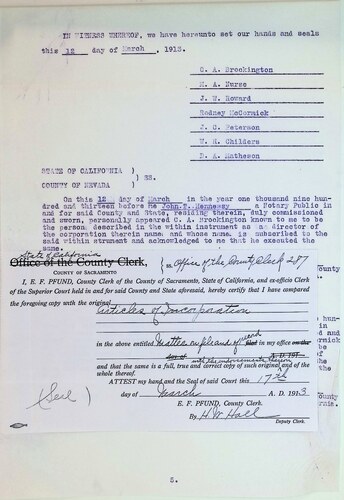 IN WITNESS WHEREOF, we have hereunto set our hands and seals
this 12 day of March, 1913.
C. A. Brockington
M. A. Nurse
J. W. Howard
Rodney McCormick
J. C. Peterson
W. H. Childers
D. A. Matheson
STATE OF CALIFORNIA )
) SS.
COUNTY OF NEVADA )
On this 12 day of March in the year one thousand nine hun-
dred and thirteen before me John T. Hennessy a Notary Public in
and for said County and State, residing therein, duly commissioned
and sworn, personally appeared C. A. Brockington known to me to be
the person, described in the within instrument as an director of
the corporation therein named and whose name is subscribed to the
said within strument and acknowledged to me that he executed the
same.
State of California
Office of the County Clerk, } ss Office of the County Clerk 287
COUNTY OF SACRAMENTO
I, E. F. PFUND, County Clerk of the County of Sacramento, State of California, and ex-officio Clerk
of the Superior Court held in and for said County and State aforesaid, hereby certify that I have compared
the foregoing copy with the original
Articles of Incorporation
in the above entitled Matter in my office
with the endorsements thereon A. D. 191
and that the same is a full, true and correct copy of such original and of the
whole thereof.
ATTEST my hand and the Seal of said Court this 17th
(Seal) day of March A. D. 1913
E. F. PFUND, County Clerk.
By H. W. Hall
Deputy Clerk.
County
hun-
in
and
rmick
be
of
the
County
nia.